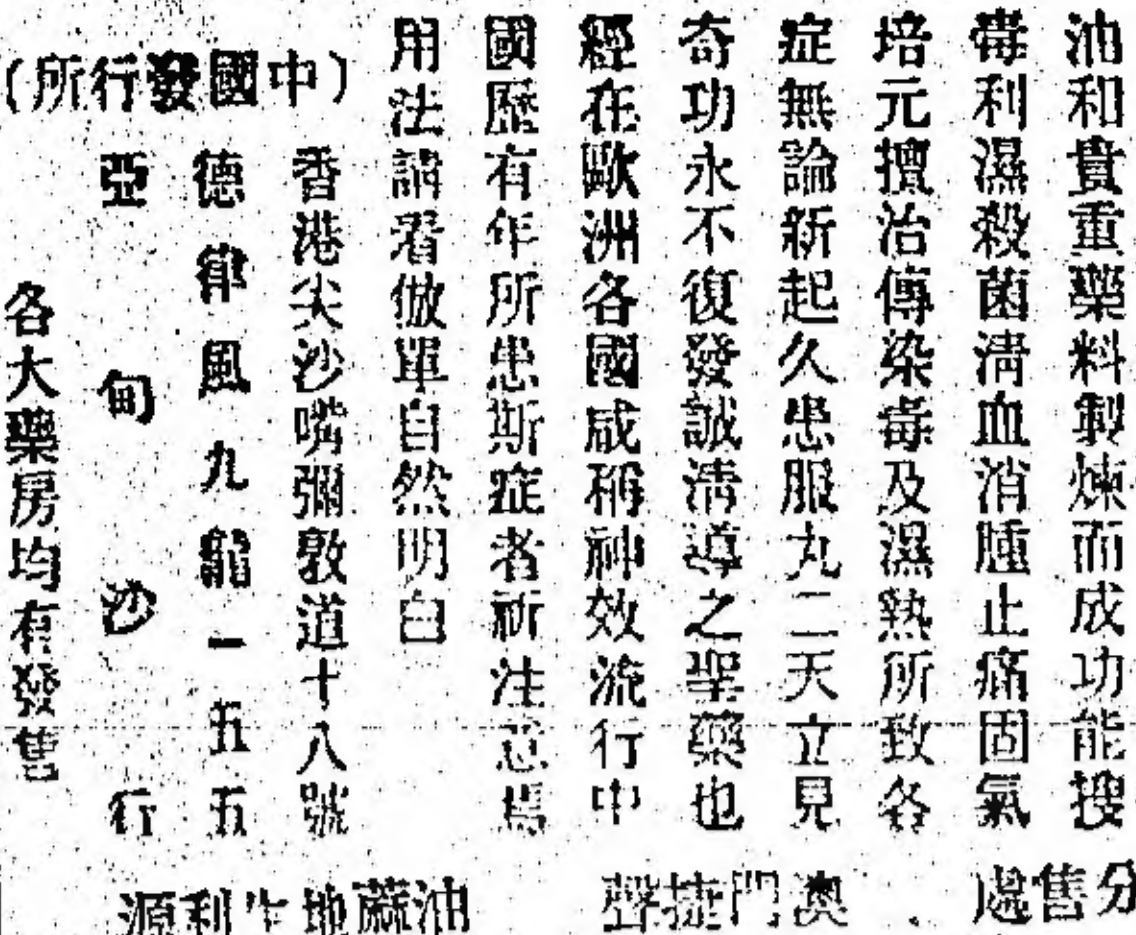 油和貴重藥料製煉而成功能搜
毒利濕殺菌淸血消腫止痛固氣
培元擅治傳染毒及濕熱所致各
症無論新起久患服丸二天立見
奇功永不復發誠淸導之聖藥也
經在歐洲各國咸稱神效流行中
國歷有年所患斯症者祈注意焉
用法請看倣單自然明白
(中國發行所)
香港尖沙嘴彌敦道十八號
德律風九龍一五五五
亞甸沙行
各大藥房均有發售
分售處
澳門捷聲
油蔴地生利源